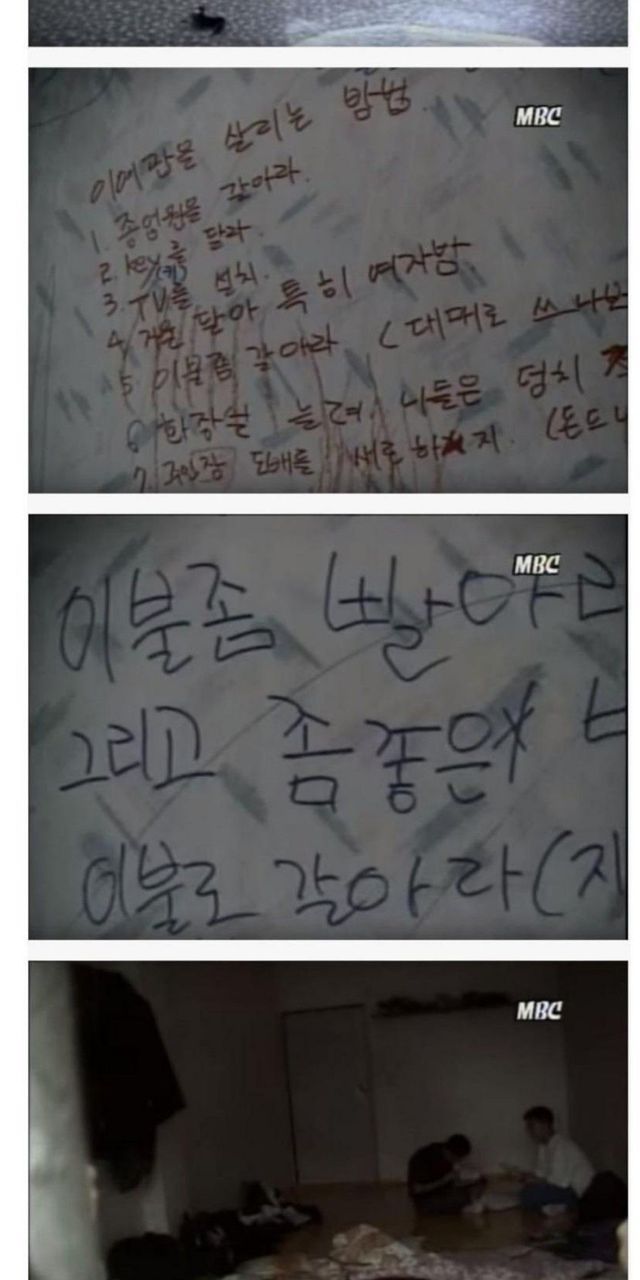 MBC
이여관을 살리는 방법.
1. 종업원을 갈아라.
2. key를 달라.
(키)
3. TV를 설치.
4. 거울 달아 특히 여자방.
5 이불좀 갈아라 (대머로 쓰나보
6 화장실 늘려. 나들은 덩치
7. 주인장 도배를 새로 하지. (돈드
MBC
이불좀 빨아라
그리고 좀좋은
이불로 갈아라(지
MBC